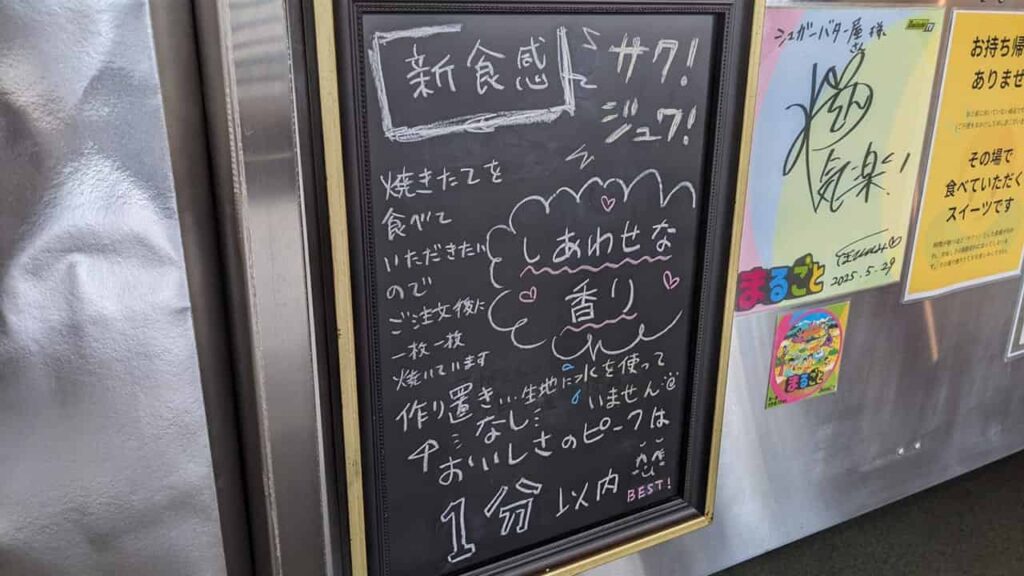 新食感
サク!
ジュワ!
焼きたてを
食べて
いただきたい
ので
ご注文後に
一枚一枚
焼いています
しあわせな
香り
作り置き
なし
生地に水を使って
いません
おいしさのピークは
1分以内
BEST!
シュガーバター屋様
気楽
2025.5.29
まるごと
まるごと
お持ち帰
ありませ
その場で
食べていただく
スイーツです